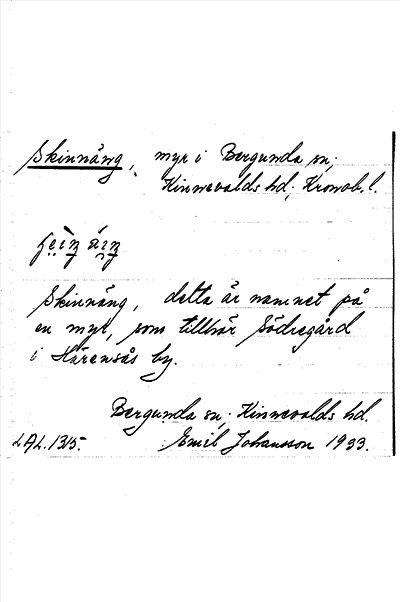 Skinnäng, myr i Bergunda sn;
Kinnevalds hd; Kronob. l.
Skinnäng, detta är namnet på
en myr, som tillhör Södregård
i Härensås by.
Bergunda sn; Kinnevalds hd.
LAL. 1315. Emil Johansson 1933.